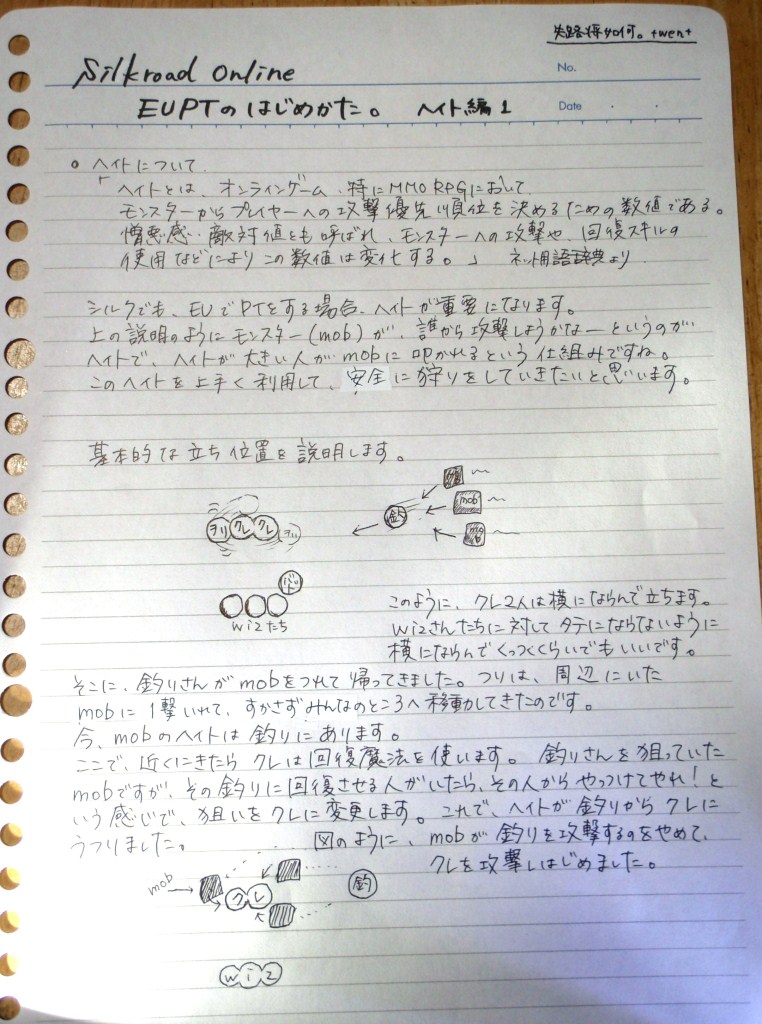 失路将如何。twent
No.
Silkroad Online
EUPTのはじめかた。 ヘイト編1
Date
○ ヘイトについて
「ヘイトとは、オンラインゲーム、特にMMORPGにおいて
モンスターからプレイヤーへの攻撃優先順位を決めるための数値である。
憎悪感・敵対値とも呼ばれ、モンスターへの攻撃や、回復スキルの
使用などによりこの数値は変化する。」 ネット用語辞典より
シルクでも、EUでPTをする場合、ヘイトが重要になります。
上の説明のようにモンスター(mob)が、誰から攻撃しようかなーというのが
ヘイトで、ヘイトが大きい人がmobに叩かれるという仕組みですね。
このヘイトを上手く利用して、安全に狩りをしていきたいと思います。
基本的な立ち位置を説明します。
ヲリ クレ クレ ヲリ
釣 mob
バード
wizたち
このように、クレ2人は横にならんで立ちます。
wizさんたちに対してタテにならないように
横にならんでくっつくくらいでもいいです。
そこに、釣りさんがmobをつれて帰ってきました。つりは、周辺にいた
mobに1撃いれて、すかさずみんなのところへ移動してきたのです。
今、mobのヘイトは釣りにあります。
ここで、近くにきたらクレは回復魔法を使います。 釣りさんを狙っていた
mobですが、その釣りに回復させる人がいたら、その人からやっつけてやれ!と
いう感じで、狙いをクレに変更します。これで、ヘイトが釣りからクレに
うつりました。 図のように、mobが釣りを攻撃するのをやめて、
クレを攻撃しはじめました。
mob クレ 釣
wiz